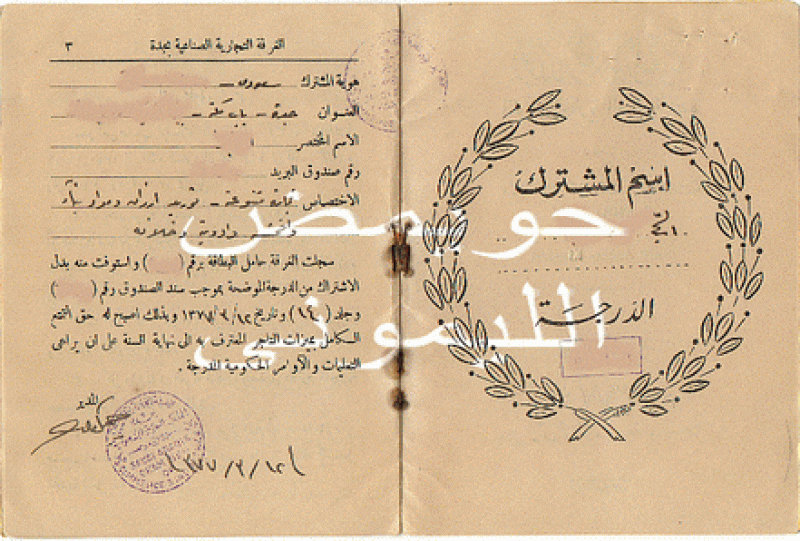 اسم المشترك
الدرجة
الغرفة التجارية الصناعية بجدة ٣
هوية المشترك سعودي -
العنوان جدة - باب مكة -
الاسم المختصر
رقم صندوق البريد
الاختصاص تجارة متنوعة - توريد ارزاق ومواد بناء
واقمشة وادوية وخلافه
سجلت الغرفة حامل البطاقة برقم ( ) واستوفت منه بدل
الاشتراك من الدرجة الموضحة بموجب سند الصندوق رقم ( )
وجلد (١٤) وتاريخ ١٣٧٧/٣/١٢ وبذلك اصبح له حق التمتع
الكامل بميزات التاجر المعترف به الى نهاية السنة على ان يراعى
التعليمات والأوامر الحكومية المدرجة .
المدير
١٣٧٧/٣/١٢
حو مض
الليموني